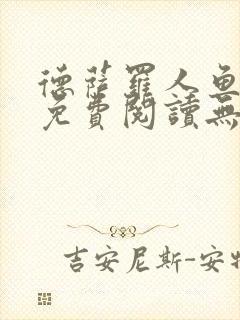 德薩羅人魚
免費閱讀無
吉安尼斯-安特